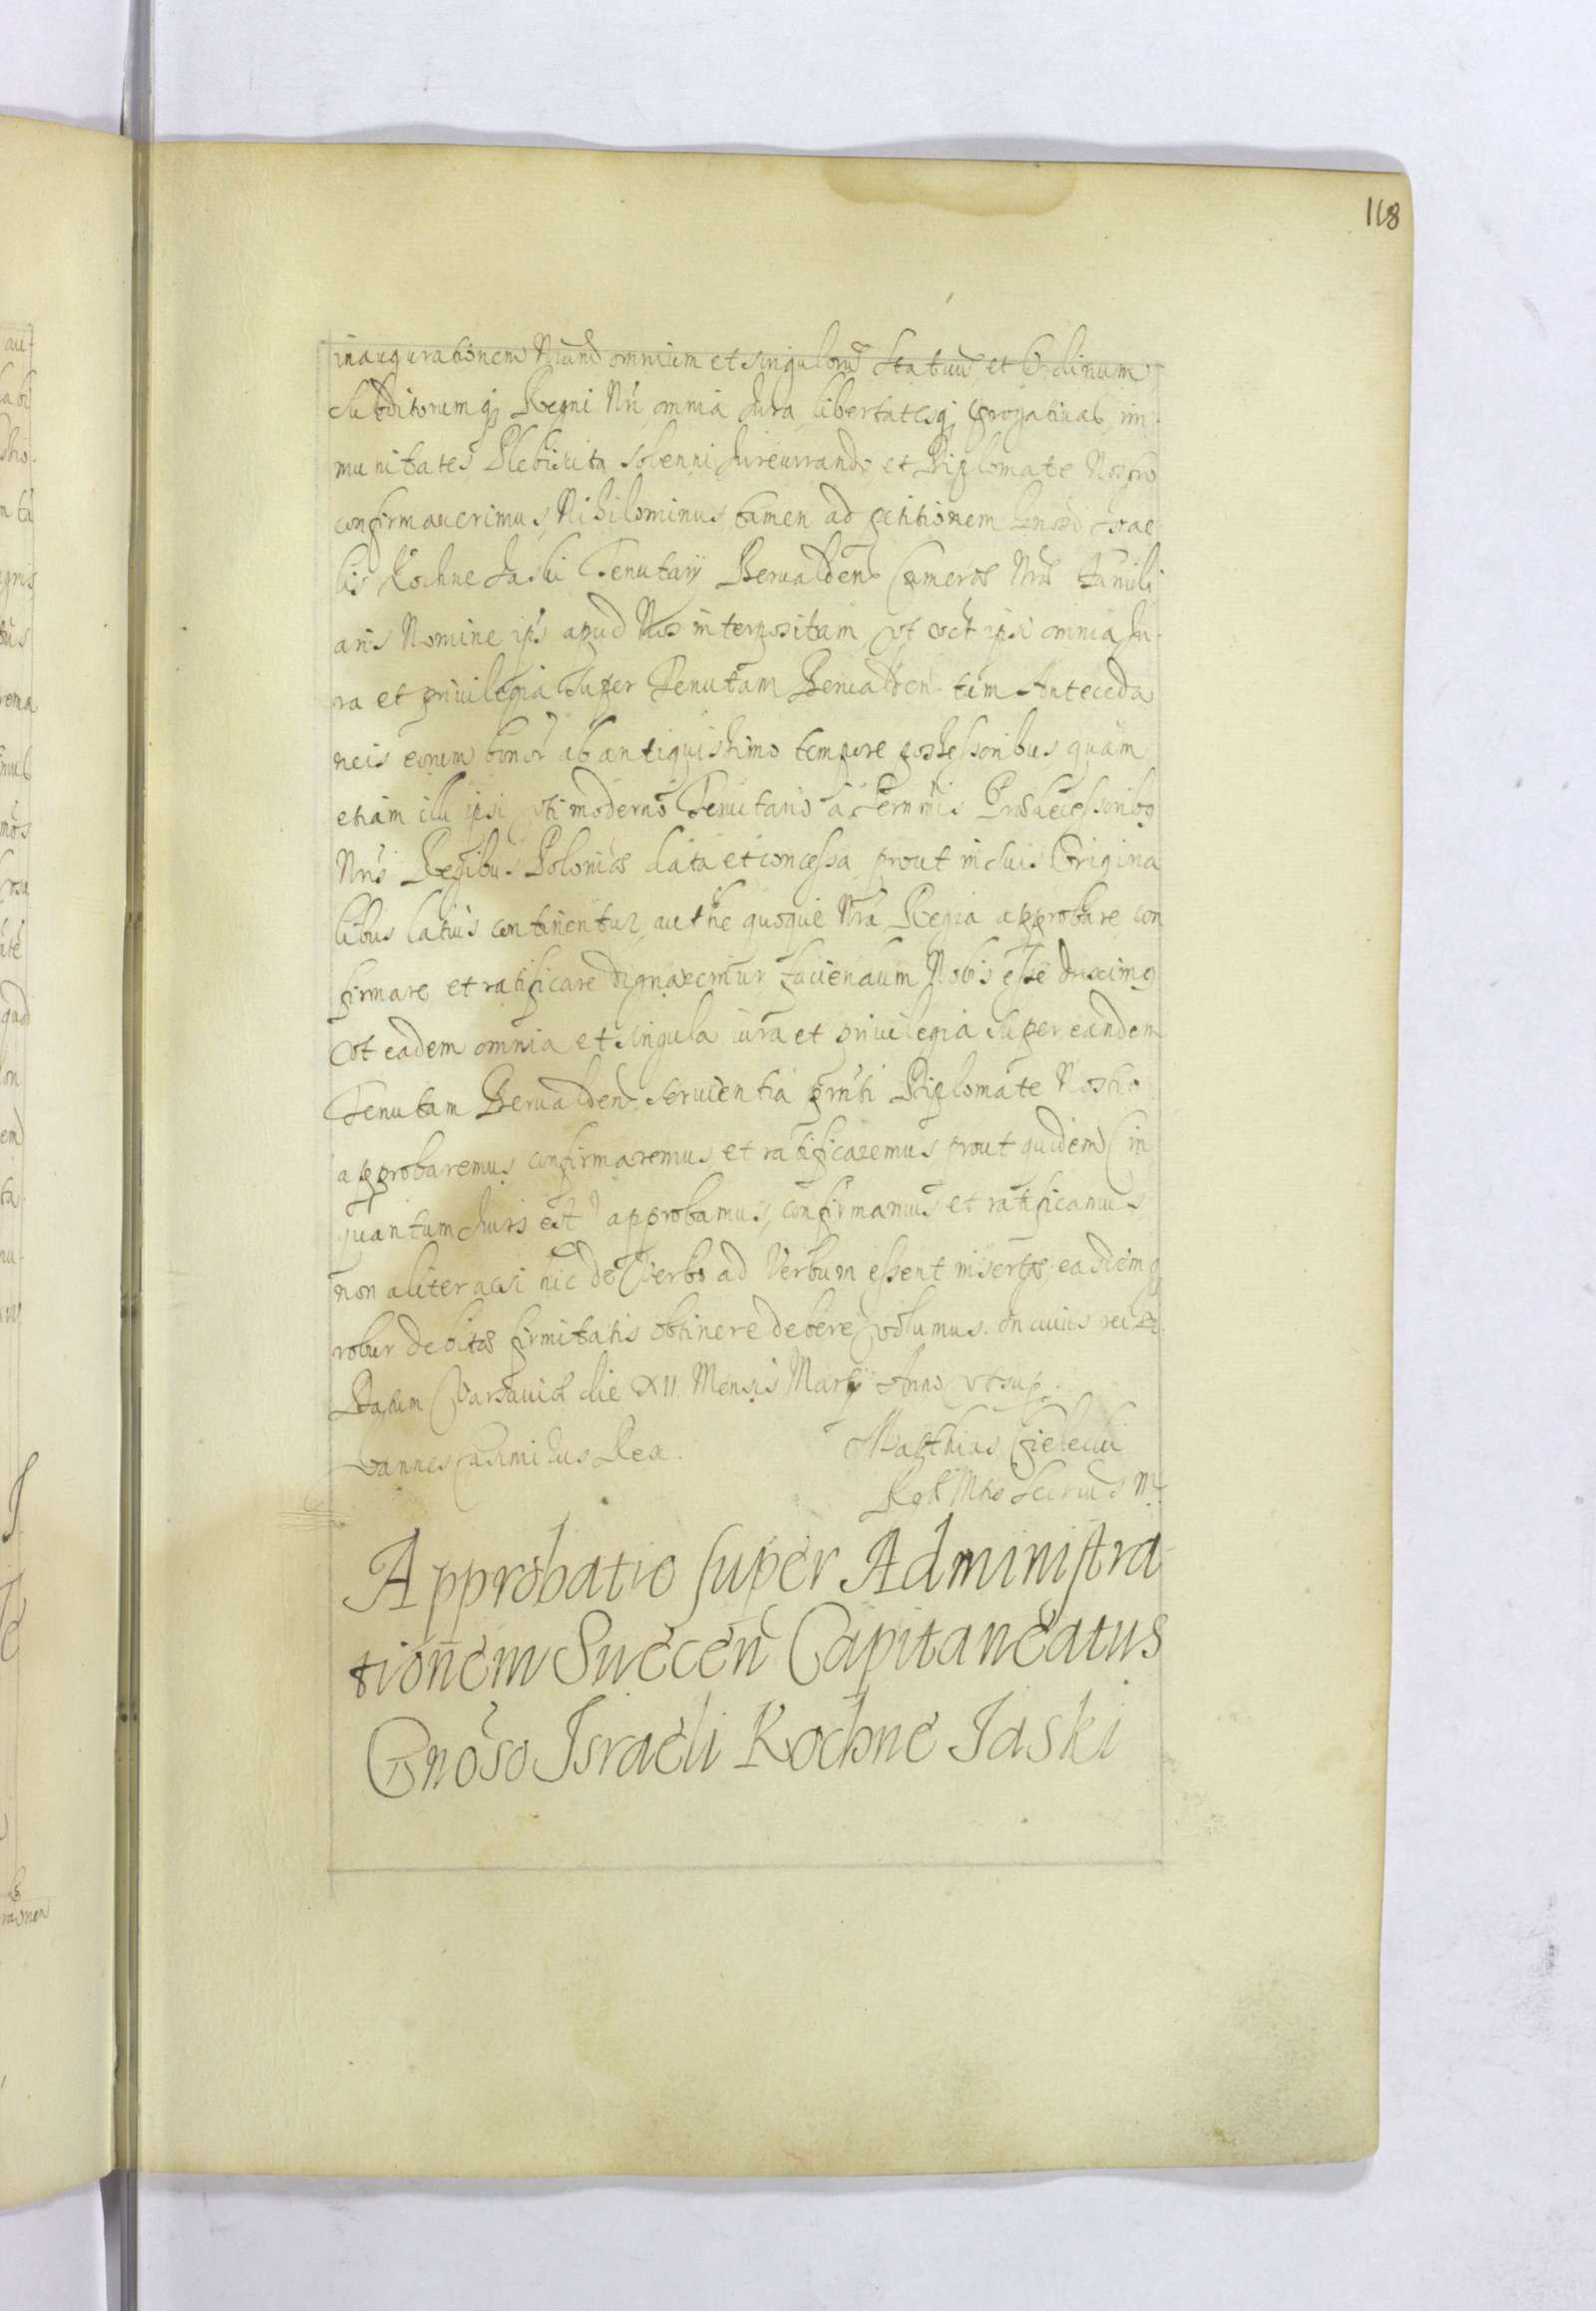 118
inaugurationem Nram omnium et singulorũ Statuũ et Ordinum
Subditorumq; Regni Nri omnia Jura, libertatesq; prrogativas im
munitates Plebiscita solenni Jureiurando et Diplomate Nostro
confirmaverimus, Nihilominus tamen ad petitionem Gnosi Israe
lis Kochne Jaski Tenutarij Bervalden Cameræ Nræ famili
aris Nomine ips apud Nos interpositam, vt ipsi omnia Ju
ra et privilegia super Tenutam Bervalden tam Anteceda
neis eorum bonor ab antiquissimo tempore possessoribus, quam
etiam illi ipsi vti moderno Tenutario a Sermis Prædecessoribq
Nris Regibus Poloniæ data et concessa prout in suis Origina
libus latius continentur, authe quoque Nra Regia approbare con
firmare et ratificare dignaremur faciendum Nobis esse duximq
Vt eadem omnia et singula iura et privilegia super eandem
Tenutam Bervalden servientia prnti Diplomate Nostro
approbaremus confirmaremus et ratificaremus, prout quidem (in
quantum Juris est) approbamus, confirmamus et ratificamus,
non aliter acsi hic de Verbo ad Verbum essent inserta, eademq
robur debitæ firmitatis obtinere debere volumus. In cuius rei
Datum Varsaviæ die XII Mensis Martij Anno vtsup.
Joannes Casimirus Rex. Matthias Cielecki
Rgæ Mtis Secrius
Approbatio super Administra
tionem Suecen Capitaneatus
Gnoso Israeli Kochne Jaski